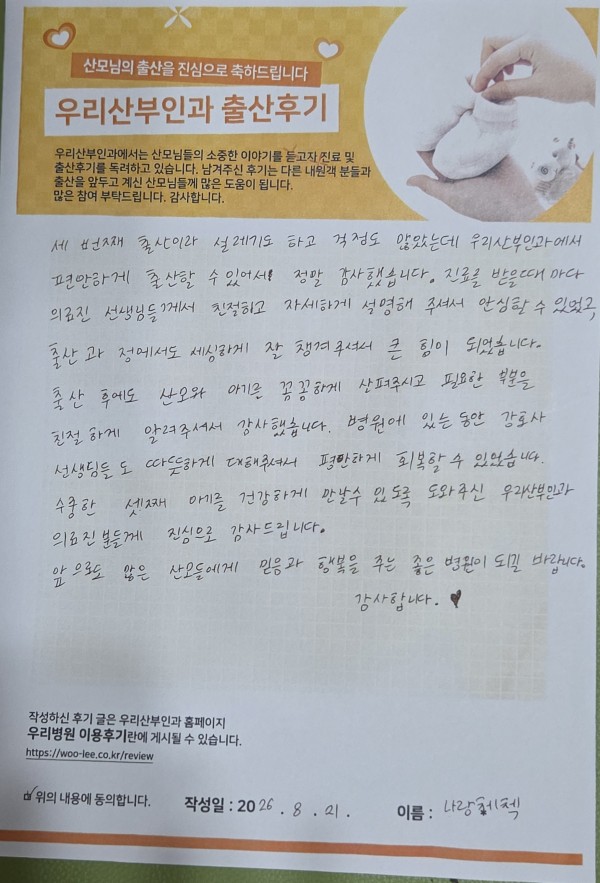 산모님의 출산을 진심으로 축하드립니다
우리산부인과 출산후기
우리산부인과에서는 산모님들의 소중한 이야기를 듣고자 진료 및
출산후기를 독려하고 있습니다. 남겨주신 후기는 다른 내원객 분들과
출산을 앞두고 계신 산모님들께 많은 도움이 됩니다.
많은 참여 부탁드립니다. 감사합니다.
세 번째 출산이라 설레기도 하고 걱정도 많았는데 우리산부인과에서
편안하게 출산할 수 있어서 정말 감사했습니다. 진료를 받을때 마다
의료진 선생님들께서 친절하고 자세하게 설명해 주셔서 안심할 수 있었고,
출산 과 정에서도 세심하게 잘 챙겨주셔서 큰 힘이 되었습니다.
출산 후에도 산모와 아기를 꼼꼼하게 살펴주시고 필요한 부분을
친절 하게 알려주셔서 감사했습니다. 병원에 있는 동안 간호사
선생님들 도 따뜻하게 대해주셔서 편안하게 회복할 수 있었습니다.
수중한 셋째 아기를 건강하게 만날수 있도록 도와주신 우리산부인과
의료진 분들께 진심으로 감사드립니다.
앞으로도 많은 산모들에게 믿음과 행복을 주는 좋은 병원이 되길 바랍니다.
감사합니다. ♥
작성하신 후기 글은 우리산부인과 홈페이지
우리병원 이용후기란에 게시될 수 있습니다.
https://woo-lee.co.kr/review
위의 내용에 동의합니다. 작성일 : 2026 . 8 . 21 . 이름 :